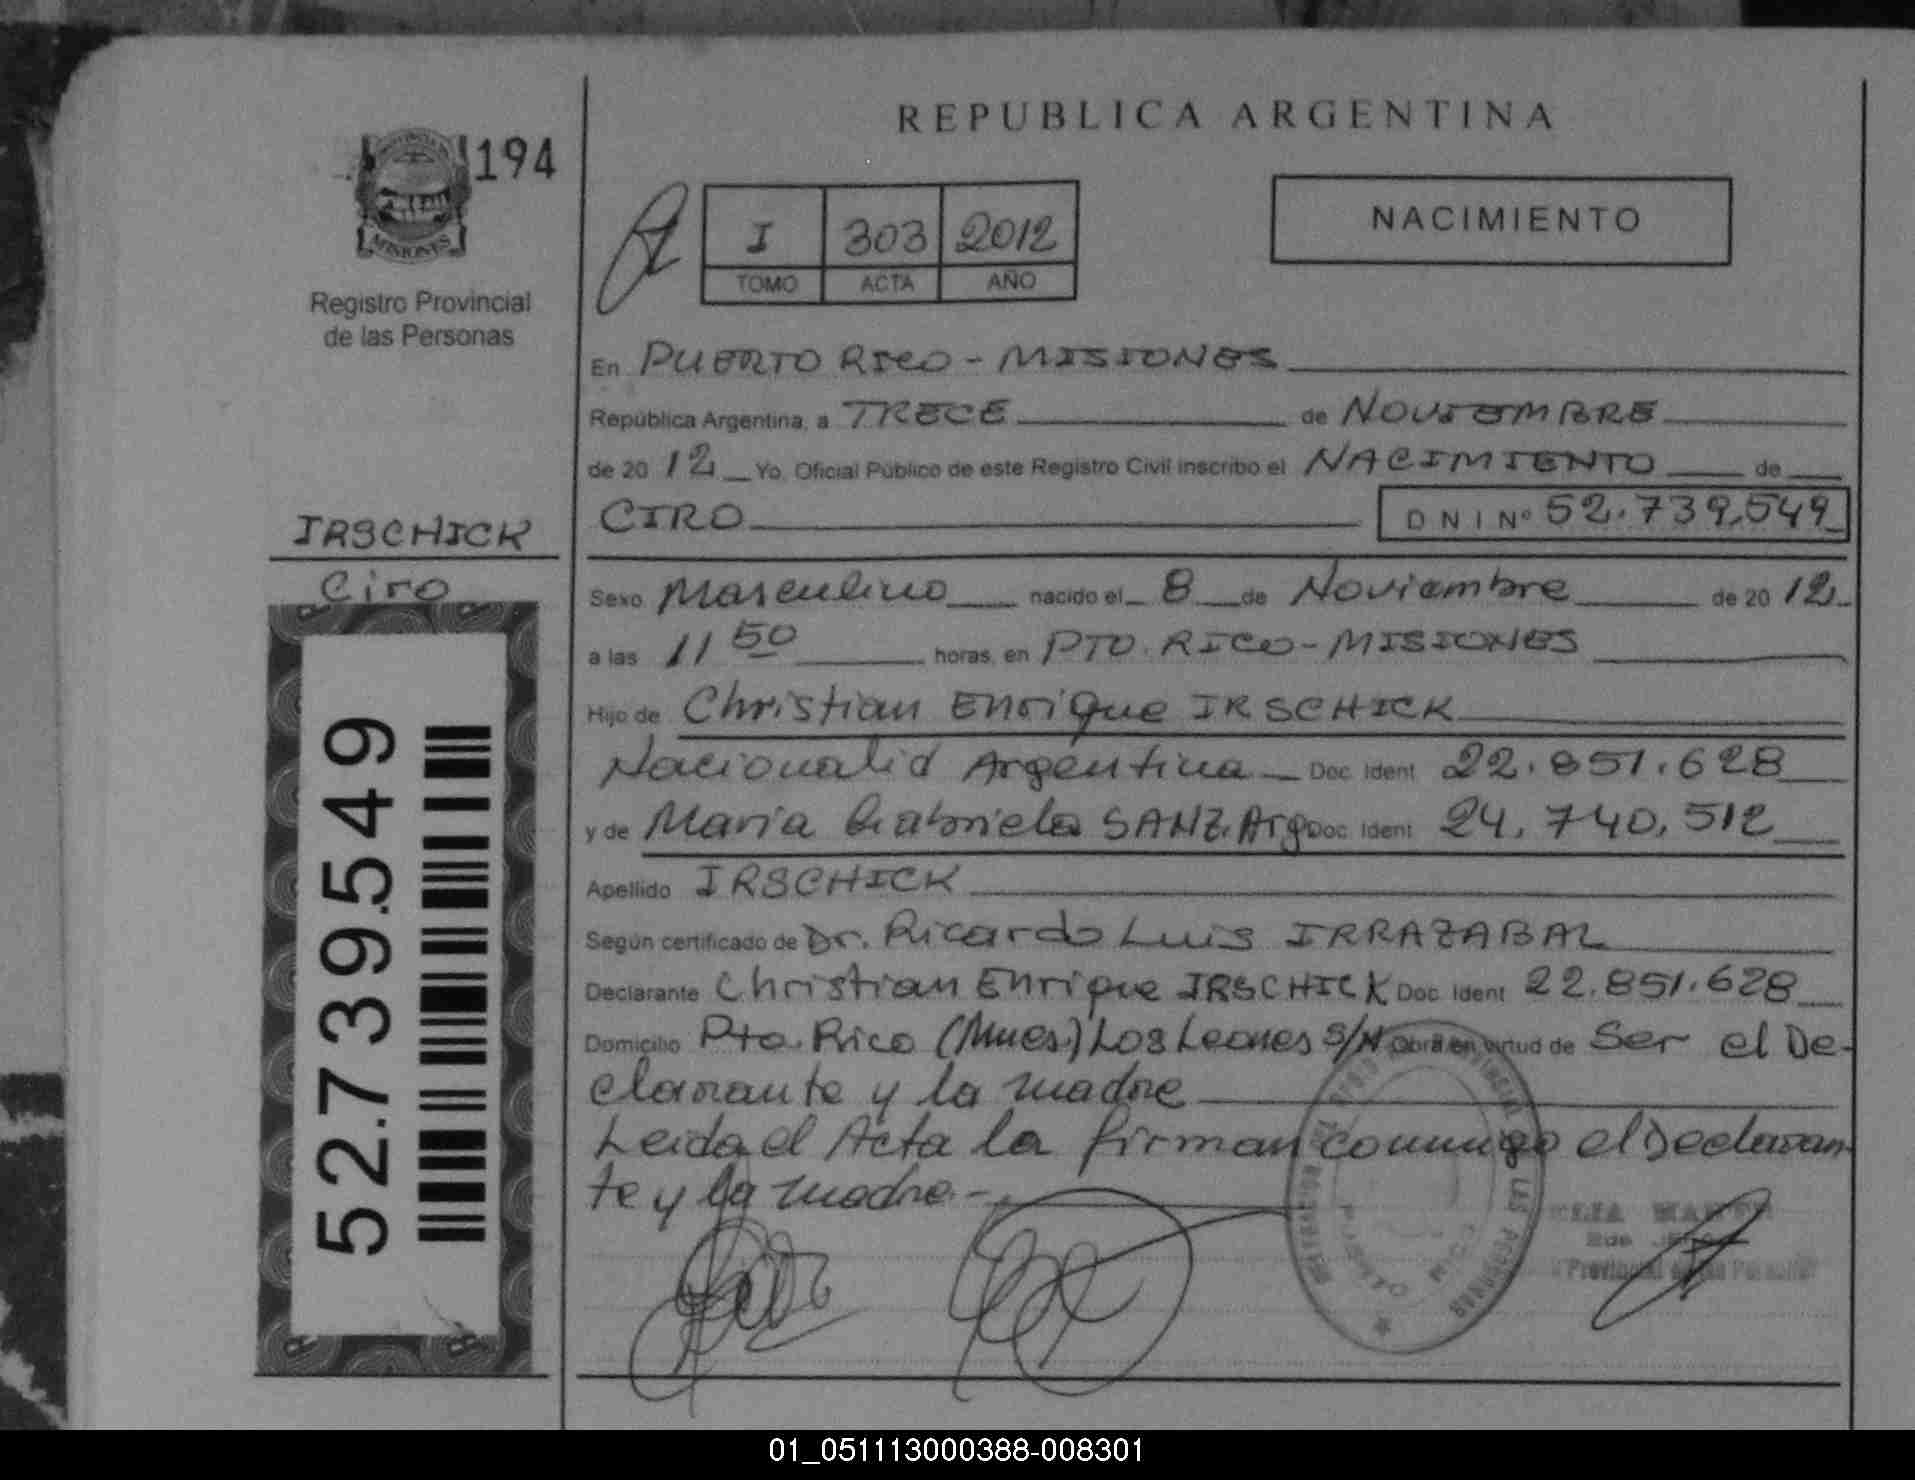 REPUBLICA ARGENTINA
194
MISIONES
Registro Provincial
de las Personas
I 303 2012
TOMO ACTA AÑO
NACIMIENTO
En PUERTO RICO - MISIONES
República Argentina, a TRECE de NOVIEMBRE
de 20 12 Yo, Oficial Público de este Registro Civil inscribo el NACIMIENTO de
CIRO DNI Nº 52.739.549
IRSCHICK
Ciro
Sexo Masculino nacido el 8 de Noviembre de 20 12
a las 11 50 horas, en PTO. RICO - MISIONES
Hijo de Christian Enrique IRSCHICK
Nacionalid Argentina Doc. Ident 22.851.628
y de Maria Gabriela SANZ. Arg Doc. Ident 24.740.512
Apellido IRSCHICK
Según certificado de Dr. Ricardo Luis IRRAZABAL
Declarante Christian Enrique IRSCHICK Doc. Ident 22.851.628
Domicilio Pto. Rico (Mnes.) Los Leones S/N Obra en virtud de Ser el De-
clarante y la madre
Leida el Acta la firman conmigo el Declaran
te y la madre.-
52.739.549
Provincial de las Personas
01_051113000388-008301